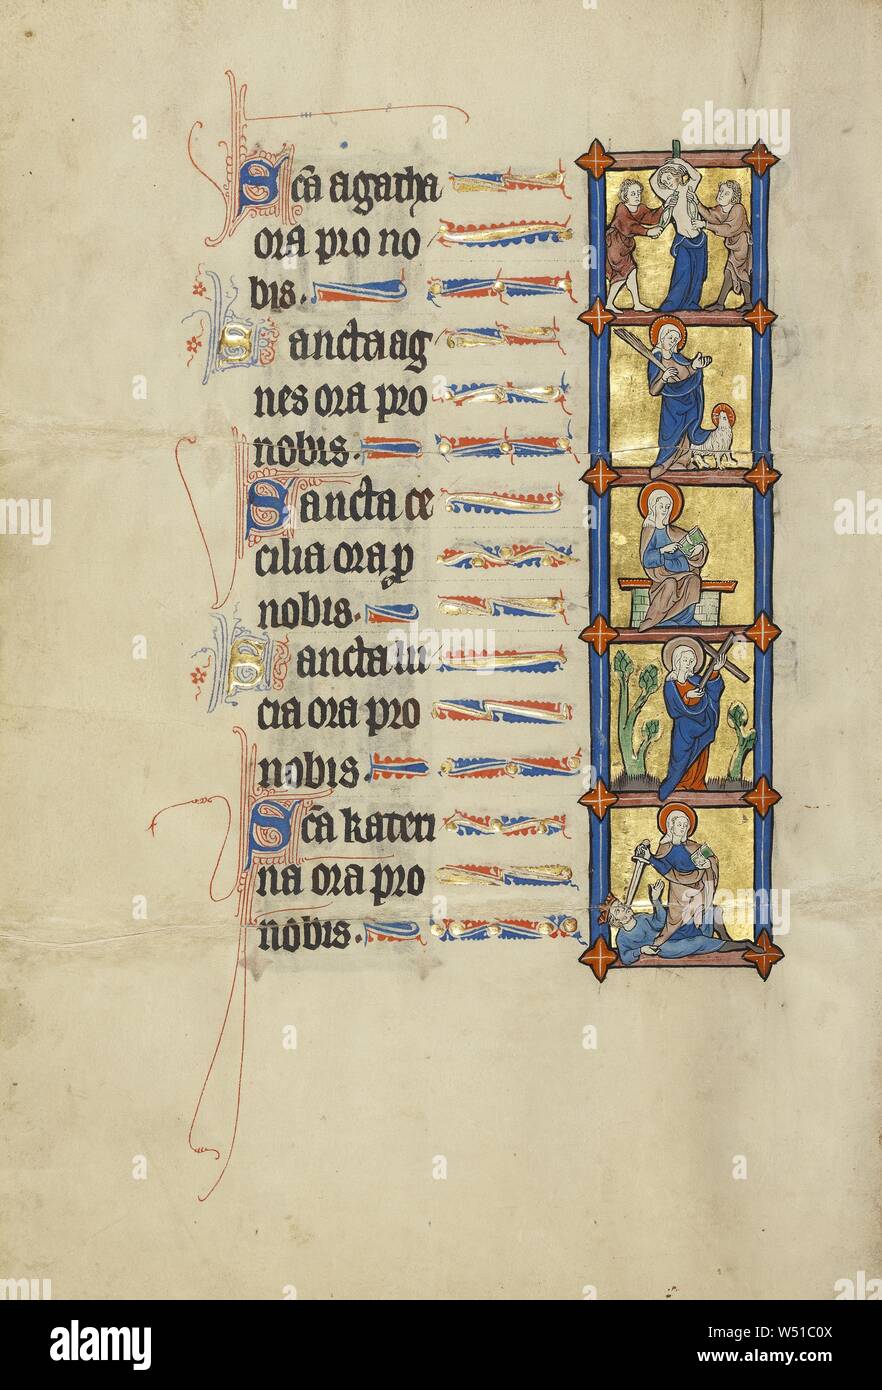 Sc̄a agatha
ora pro no
bis.
Sancta ag
nes ora pro
nobis.
Sancta ce
cilia ora ꝓ
nobis.
Sancta lu
cia ora pro
nobis.
Sc̄a kateri
na ora pro
nobis.
alamy
Image ID: W51C0X
www.alamy.com